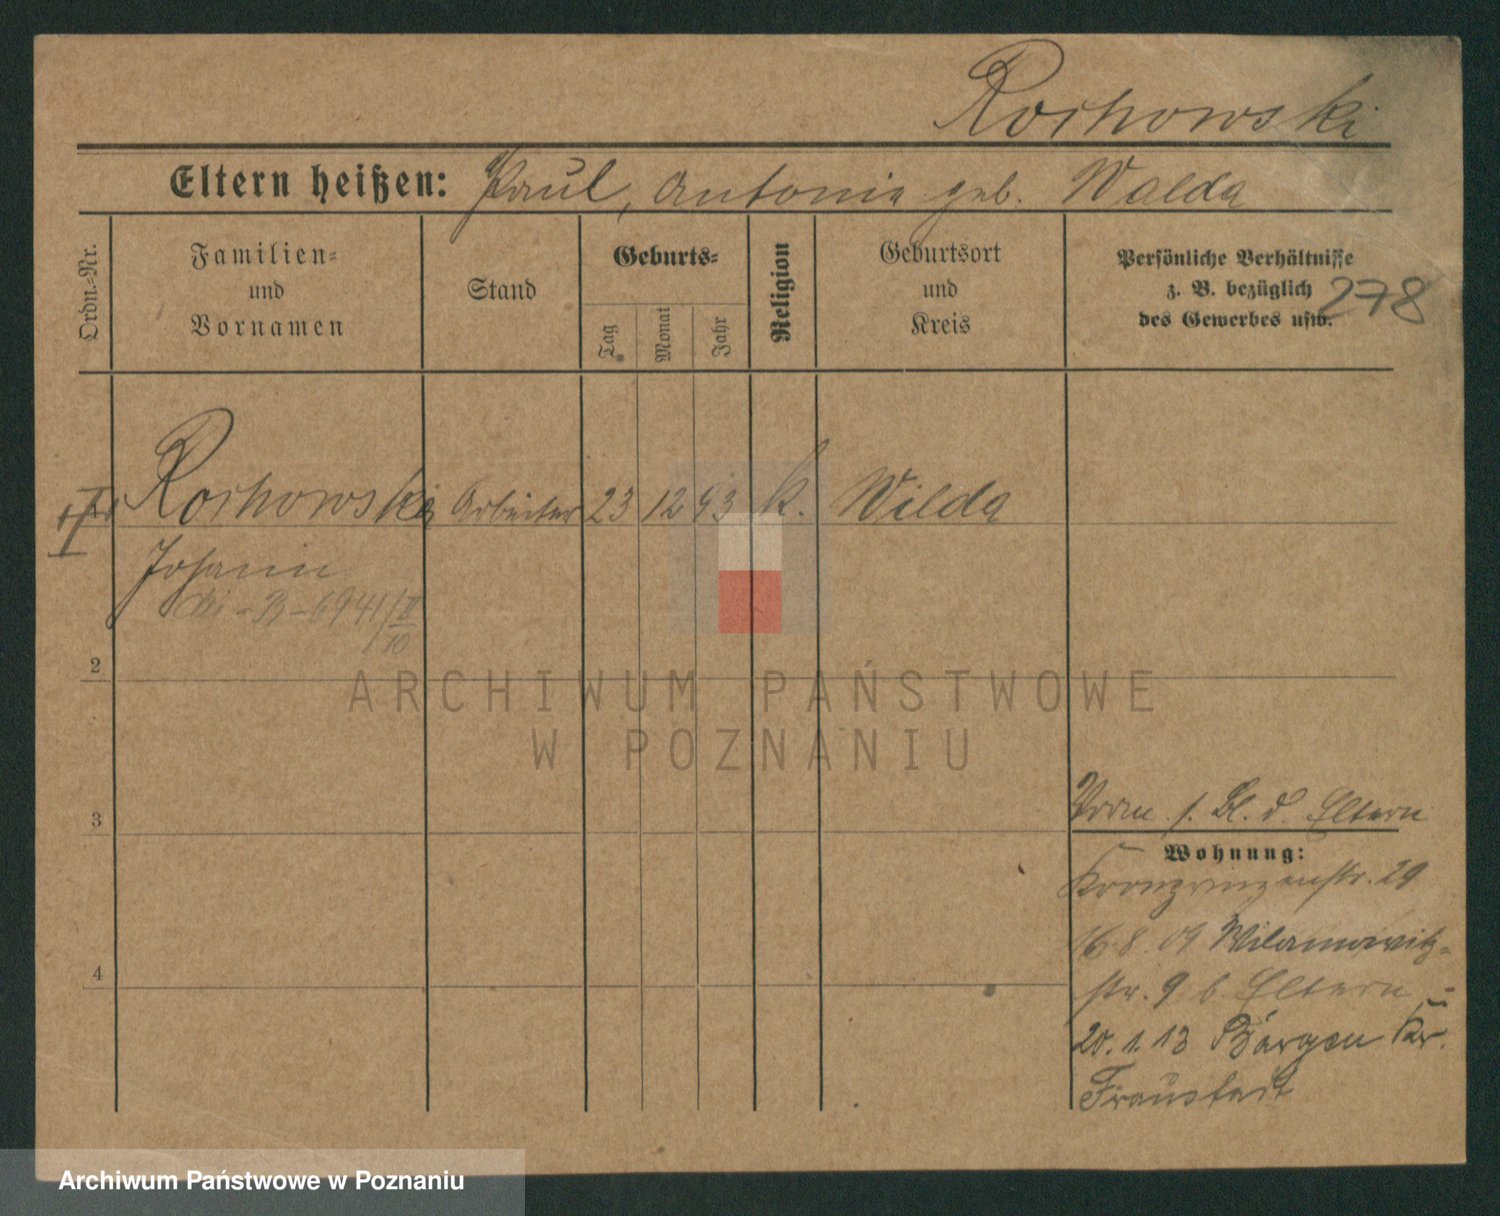 Rochowski
Eltern heißen: Paul, Antonie geb. Walda
Ordn.=Nr.
Familien=
und
Vornamen
Stand
Geburts=
Tag
Monat
Jahr
Religion
Geburtsort
und
Kreis
Persönliche Verhältnisse
z. B. bezüglich
des Gewerbes usw.
278
Rochowski Arbeiter 23 12 93 k. Wilda
Johann
B-6941/II
10
2
ARCHIWUM PAŃSTWOWE
W POZNANIU
3
4
Vorm s. Bl. d. Eltern
Wohnung:
Kronprinzenstr. 29
16.8.09 Wilamowitz=
str. 9 b. Eltern
20.1.13 Bargen Kr.
Fraustadt
Archiwum Państwowe w Poznaniu